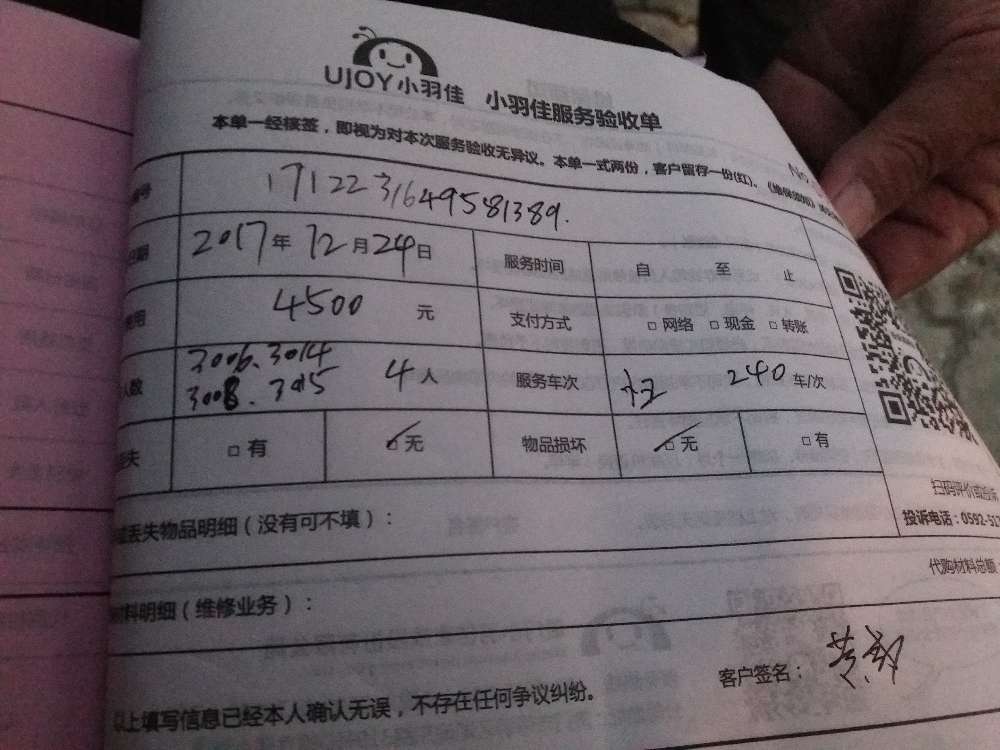 UJOY小羽佳 小羽佳服务验收单
本单一经核签，即视为对本次服务验收无异议。本单一式两份，客户留存一份(红)。
No
号 171223164958 1389.
日期 2017年12月24日 服务时间 自 至 止
用 4500 元 支付方式 □网络 □现金 □转账
人数 3006.3014 3008.3015 4人 服务车次 240 车/次
失 □有 □无 物品损坏 □无 □有
丢失物品明细（没有可不填）：
扫码评价或
投诉电话：0592-52
代购材料总额
料明细（维修业务）：
客户签名：
以上填写信息已经本人确认无误，不存在任何争议纠纷。